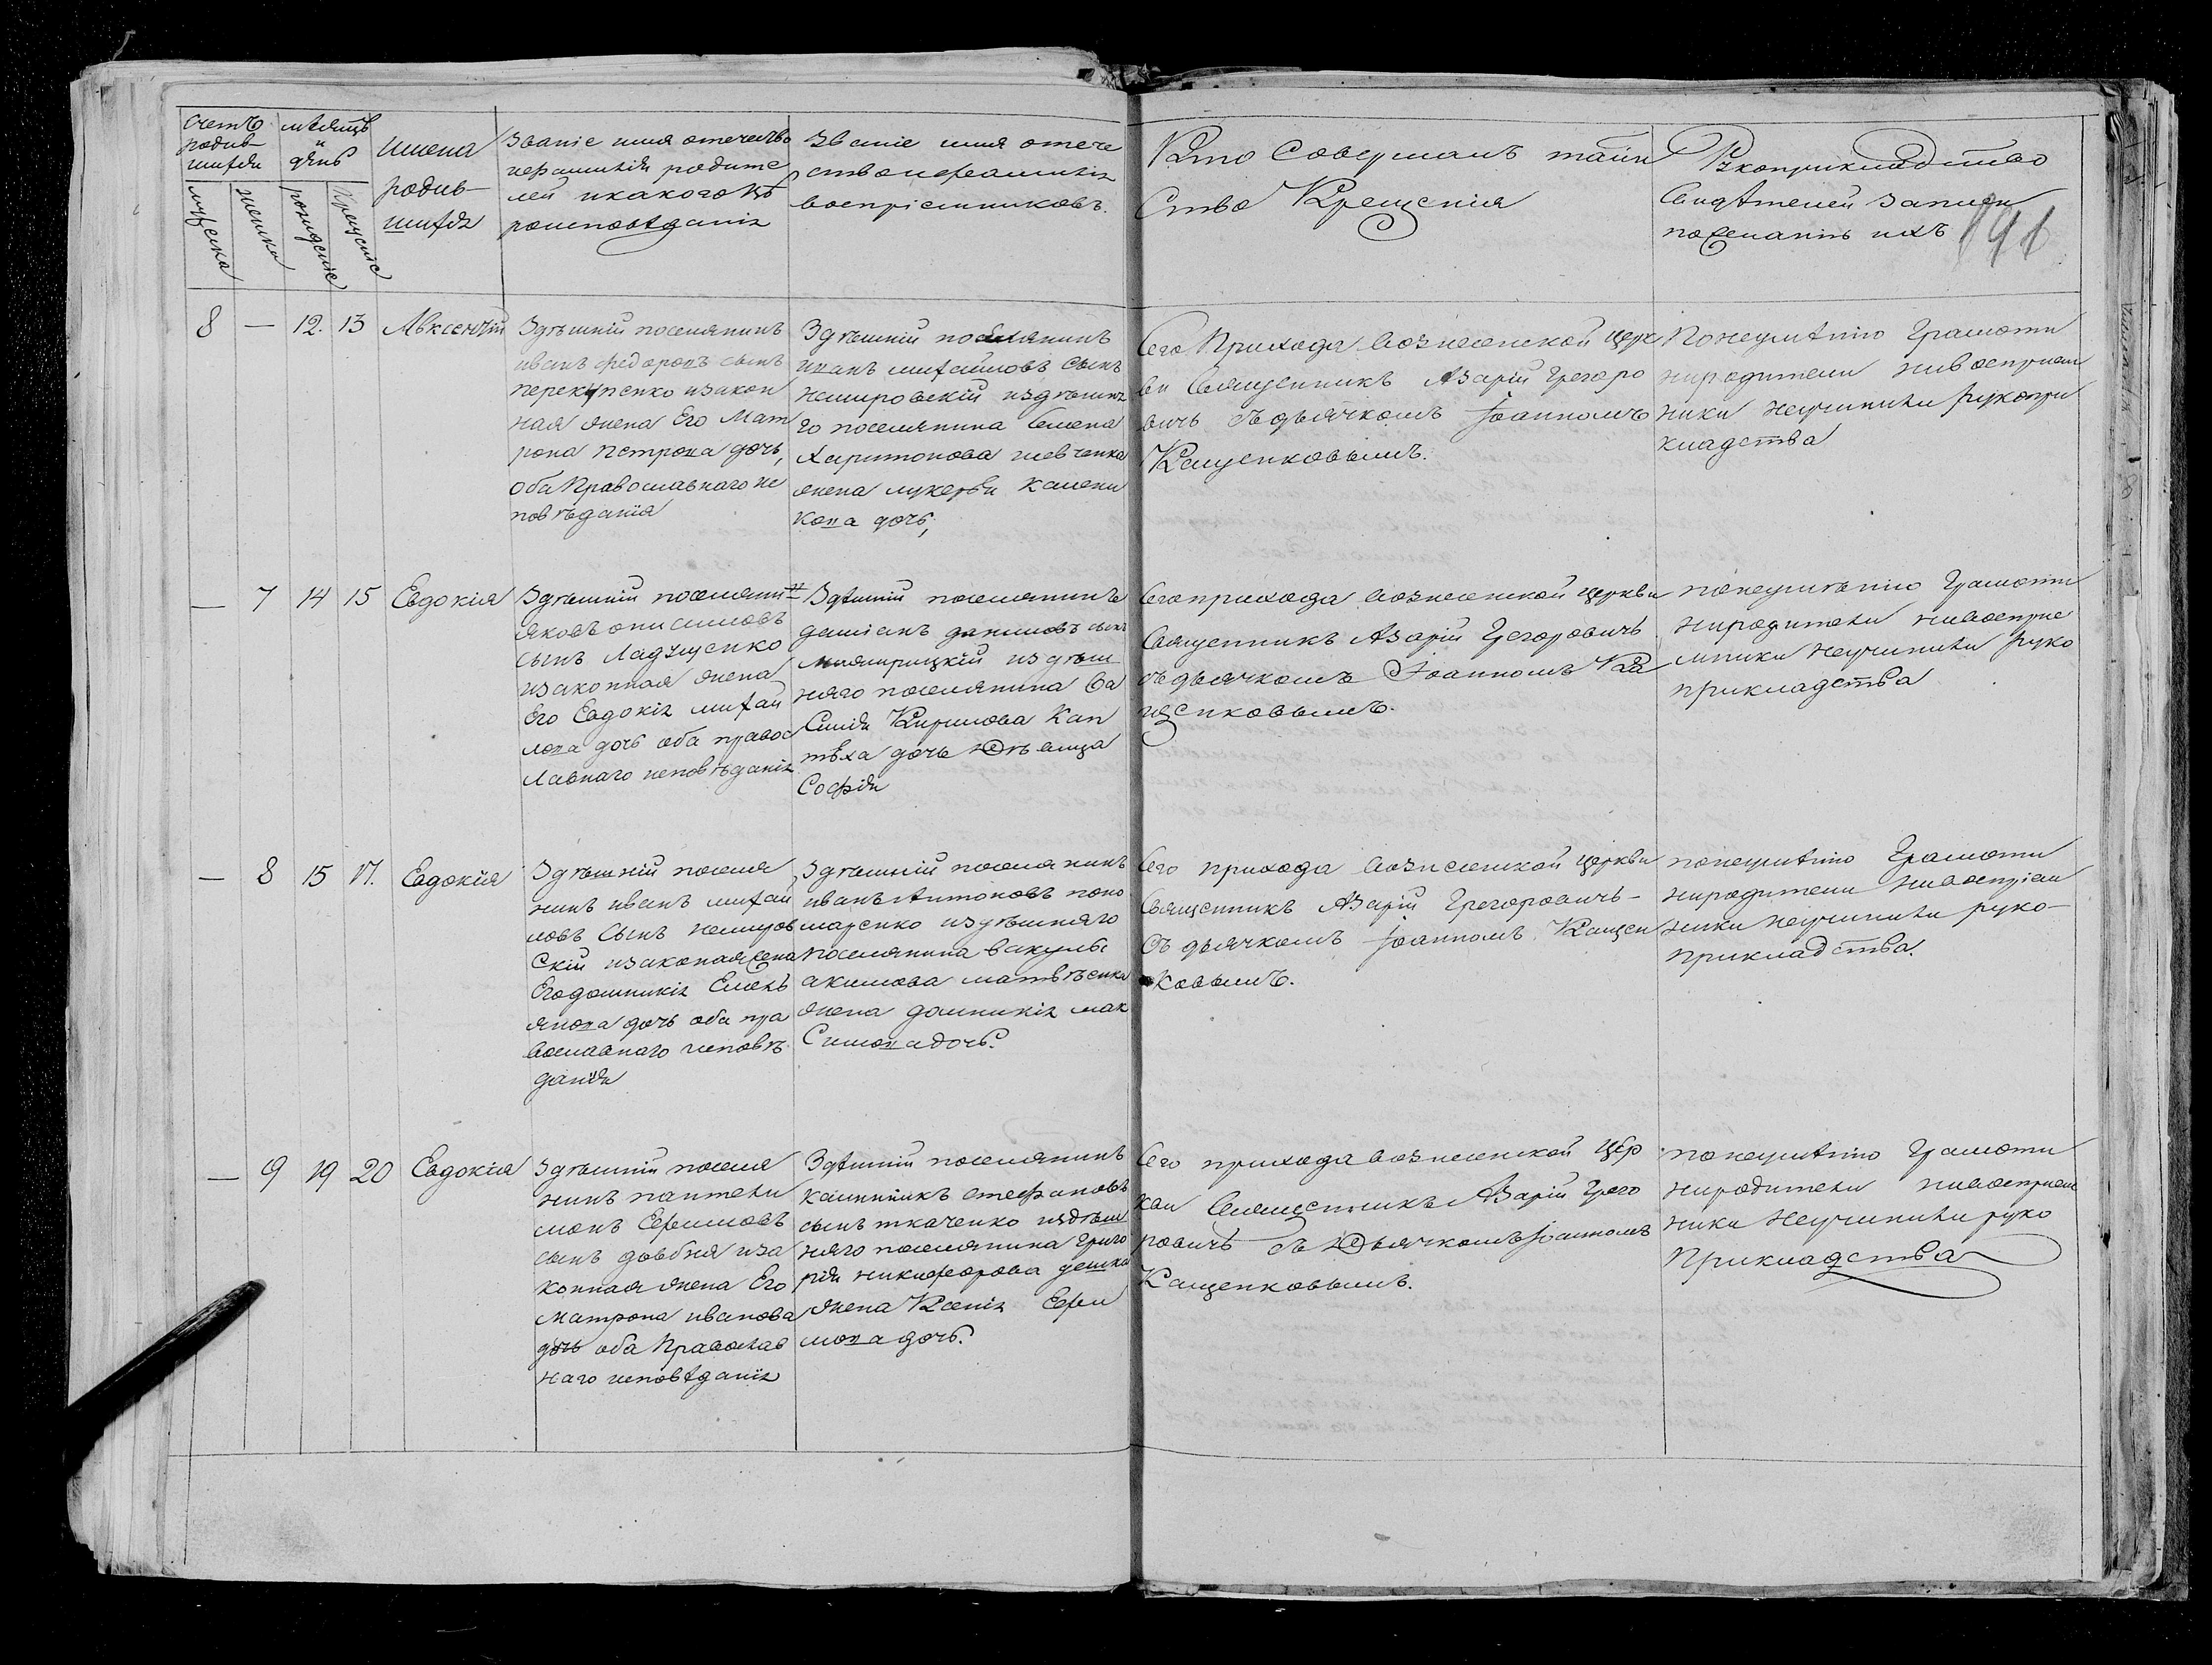 счетъ
родив-
шихся
мѣсяцъ
и
день
имена
родив-
шихся
Званіе имя отечество
ифамилія родите
лей икакого вѣ
роисповѣданія
Званіе имя отече
ство ифамилія
воспріемниковъ.
Кто Совершалъ таин
Ство Крещенія
Рукоприкладство
Свидѣтелей записи
пожеланію ихъ
мужеска
женска
рожденіе
Крещеніе
8 — 12. 13 Авксентій
Здѣшній поселянинъ
иванъ федоровъ сынъ
перекупенко изакон
ная жена Его Мат
рона петрова дочь,
оба Православнаго ис
повѣданія
Здѣшній поселянинъ
иванъ михайловъ Сынъ
немировскій издѣшня
го поселянина Семена
харитонова шевченка
жена лукерья
кова дочь,
Сего Прихода Вознесенской церк
ви Священникъ Азарій Грегоро
вичь Съдьячкомъ Іоанномъ
Кащенковымъ.
Понеумѣнію Грамоти
ниродители нивосприем
ники неучинили рукопри
кладства
— 7 14 15 Евдокія
Здѣшній поселянин
яковъ онисимовъ
сынъ Ладущенко
изаконная жена
Его Евдокія михай
лова дочь оба правос
лавнаго исповѣданія
Здѣшній поселянинъ
даміанъ даниловъ сынъ
издѣш
няго поселянина Ва
Силія Кирилова Кап
дочь дѣвица
Софія
Сего прихода Вознесенской церкви
Священникъ Азарій Грегоровичь
съдьячкомъ Іоанномъ Ка
щенковымъ.
понеумѣнію Грамоти
ниродители нивосприе
мники неучинили руко
прикладства
— 8 15 17. Евдокія
Здѣшній поселя
нинъ иванъ михай
ловъ Сынъ немиров
Скій изаконая жена
Его домникія Емель
янова дочь оба пра
вославнаго исповѣ
данія
Здѣшній поселянинъ
иванъ Антоновъ поно
маренко издѣшняго
поселянина вакулы
акимова матвѣенка
жена домникія мак
Симова дочь.
Сего прихода Вознесенской церкви
Священникъ Азарій Грегоровичь-
Съ дьячкомъ Іоанномъ Кащен
ковымъ.
понеумѣнію Грамоти
ниродители нивоспріем
ники неучинили руко-
прикладства.
— 9 19 20 Евдокія
Здѣшній поселя
нинъ пантели
монъ Ефимовъ
сынъ довбня иза
конная жена Его
матрона иванова
дочь оба Православ
наго исповѣданія
Здѣшній поселянинъ
калиникъ стефановъ
сынъ ткаченко издѣш
няго поселянина Григо
рія никифорова дешка
жена Ксенія Ефи
мова дочь.
Сего прихода Вознесенской Цер
кви Священникъ Азарій Грего
ровичь Съ Дьячкомъ Іоанномъ
Кащенковымъ.
понеумѣнію Грамоти
ниродители нивосприем
ники неучинили руко
Прикладства